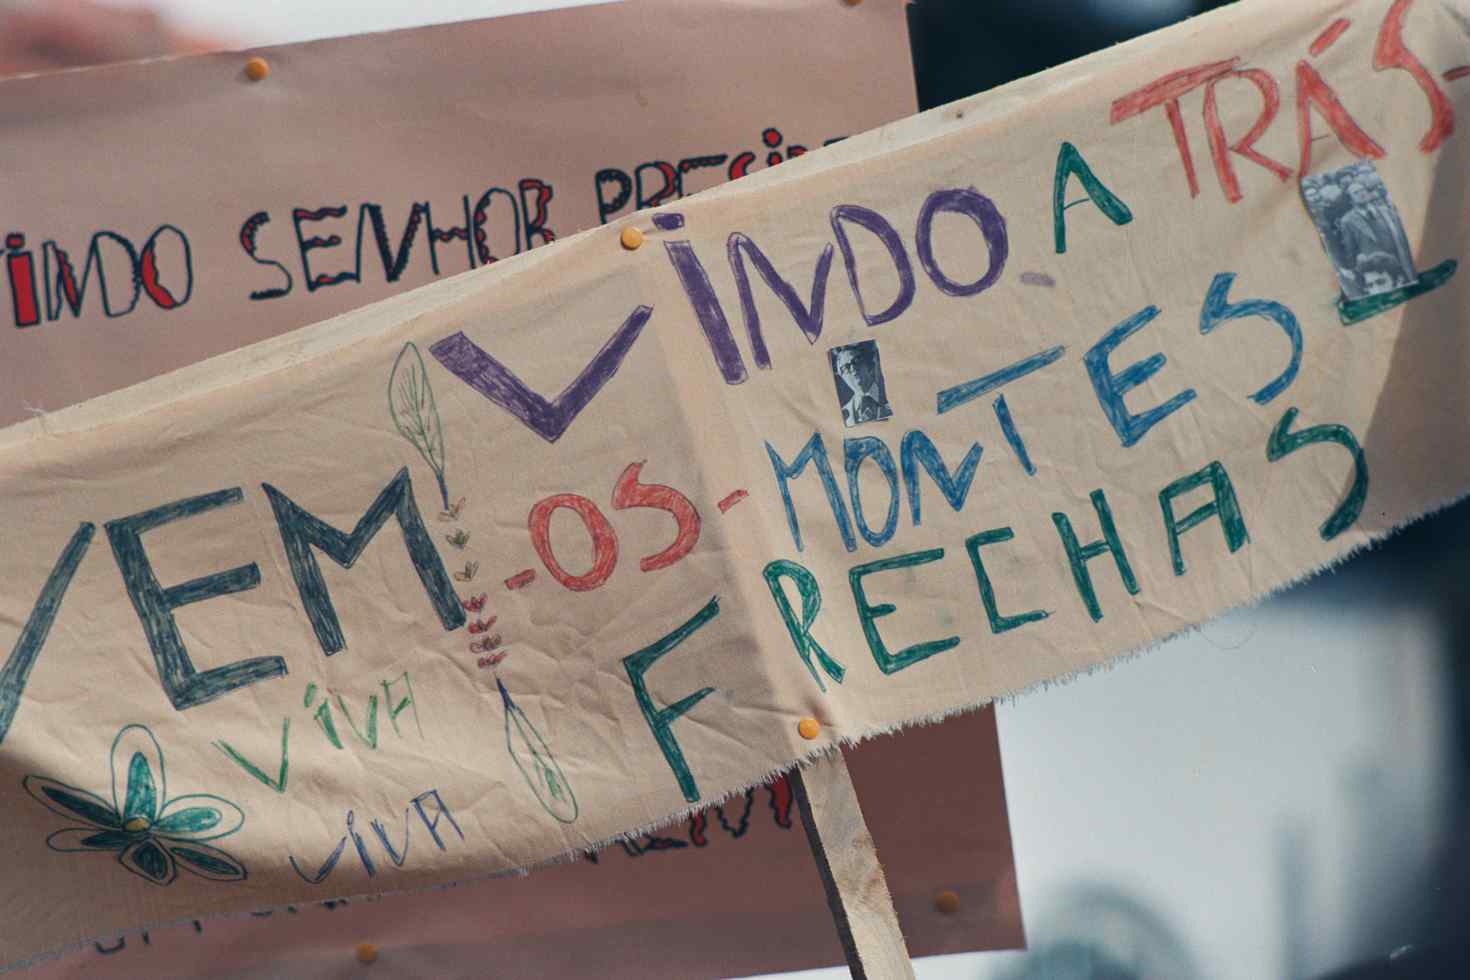 INDO SENHOR
VEM VINDO A TRÁS-
-OS- MONTES E
FRECHAS
VIVA
VIVA